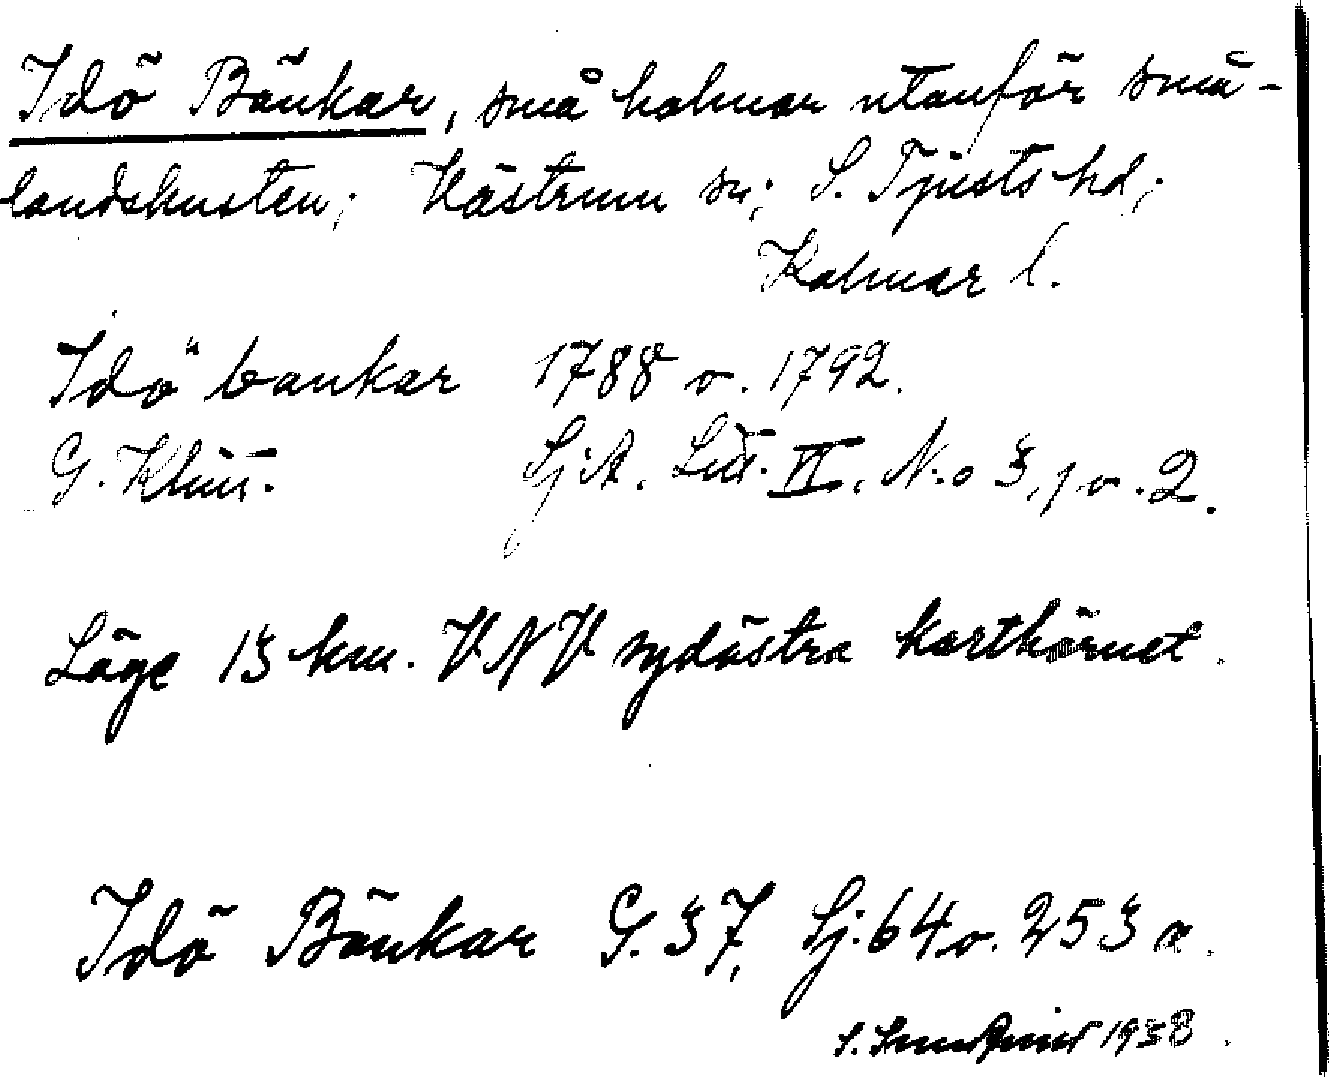 Idö Bänkar, små holmar utanför små-
landskusten; Västrum sn; S. Tjusts hd;
Kalmar l.
Idö bankar 1788 o. 1792.
G. Klint. Sj.A. Litt. VI, N:o 3, 1 o. 2.
Läge 13 km. VNV sydöstra karthörnet.
Idö Bänkar G. 37, Sj: 64 o. 253 a.
S. 1938.